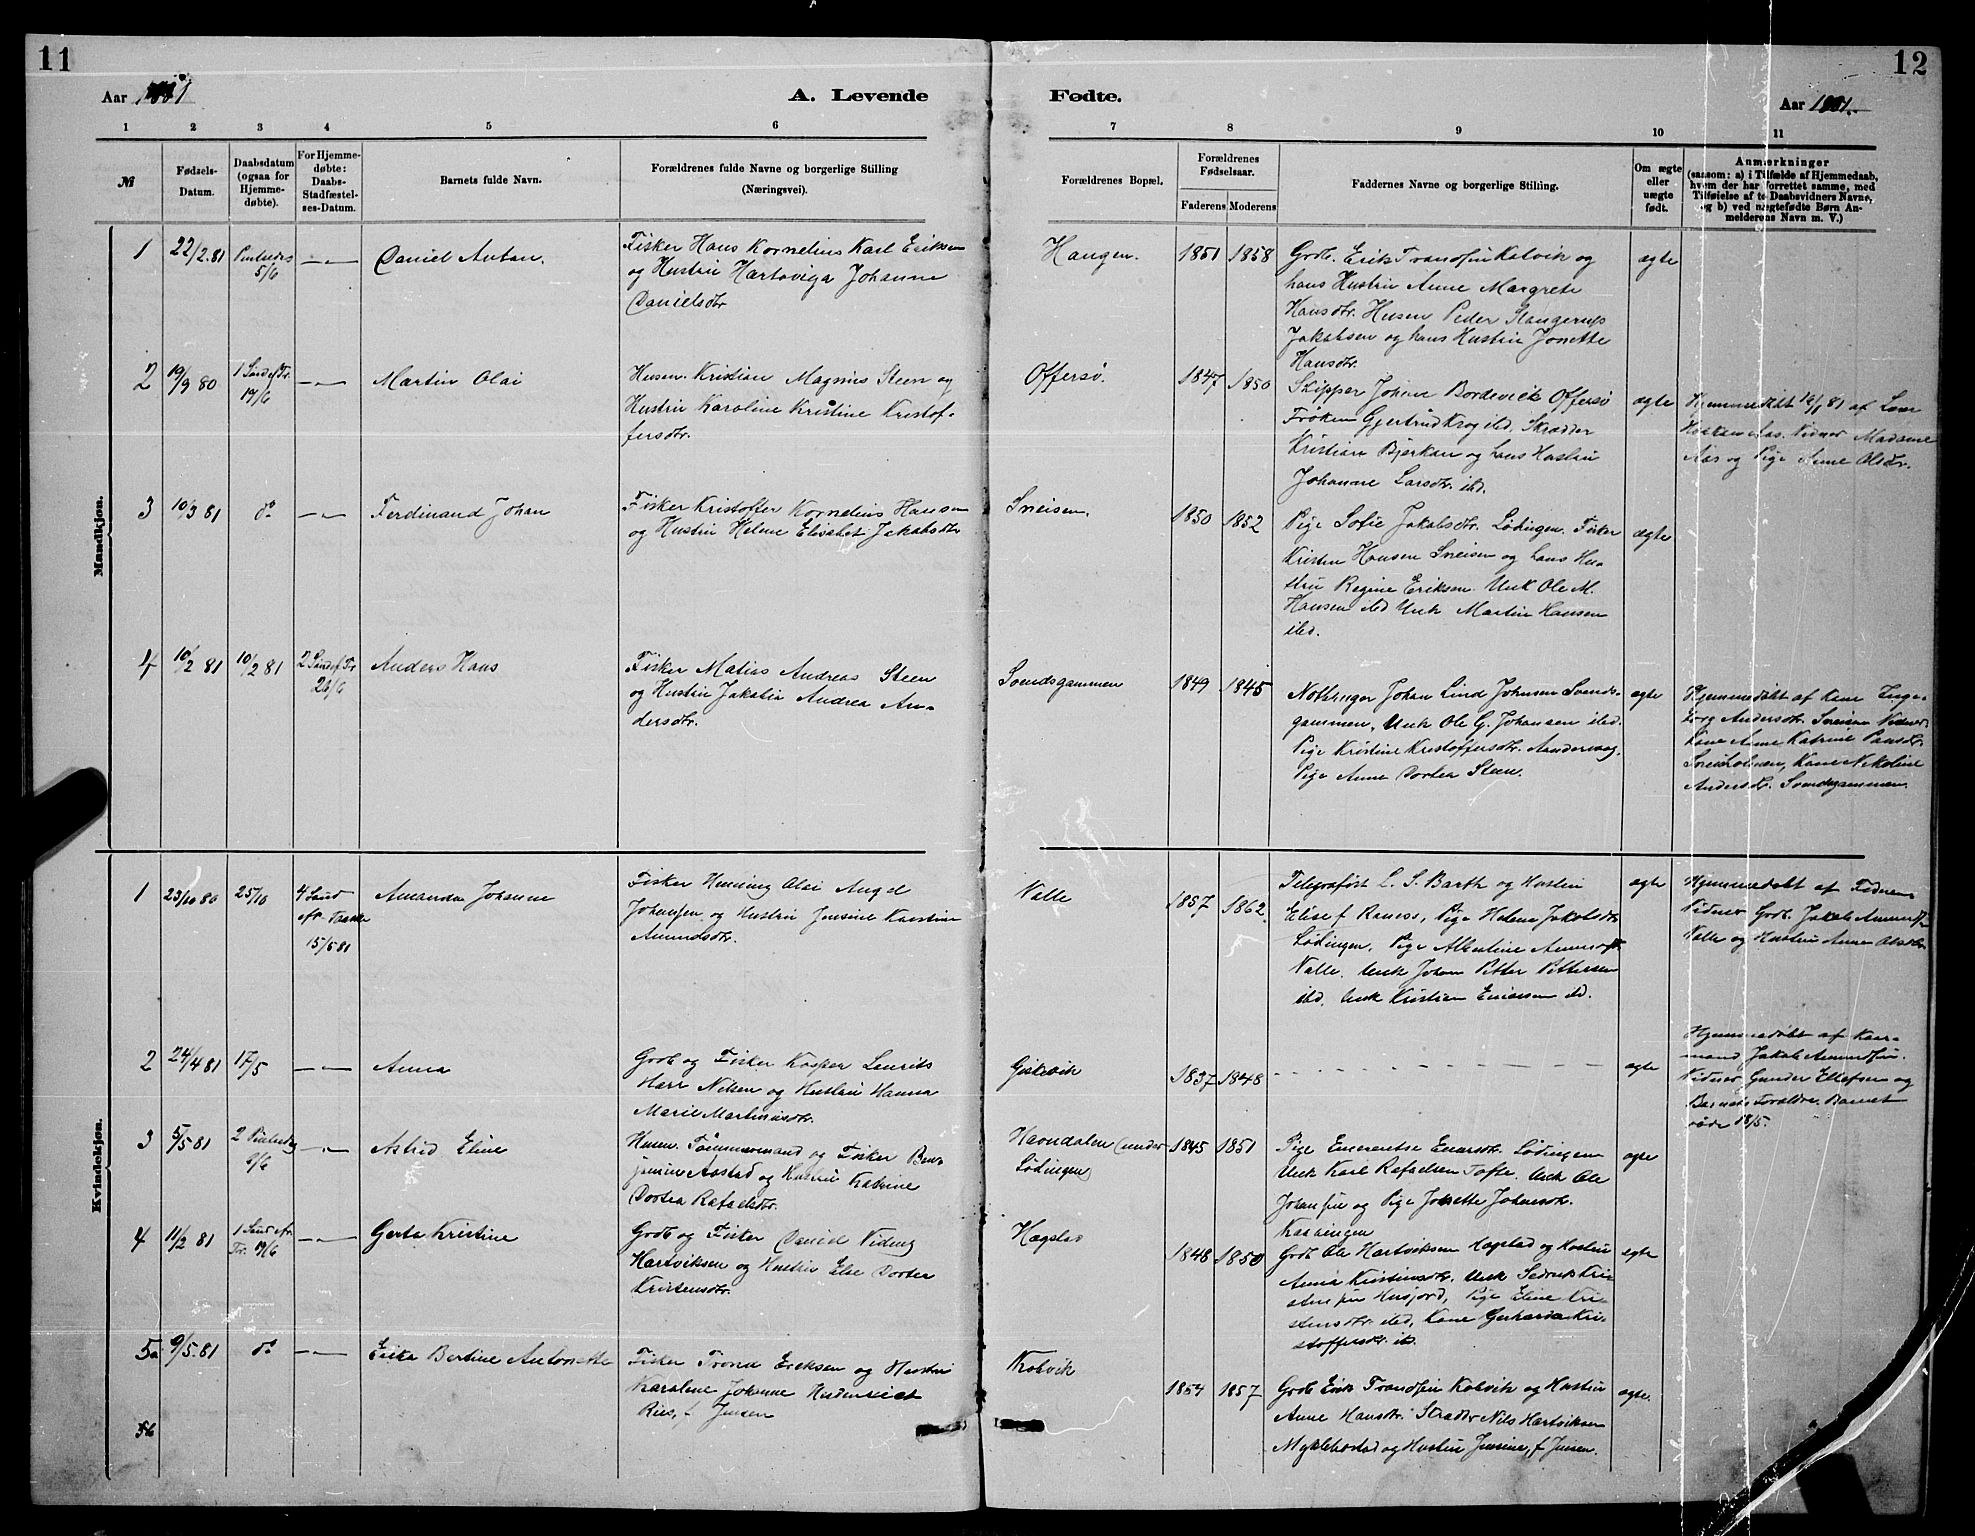 11
12
Aar 1881
A. Levende
Fødte.
Aar 1881.
1 2 3 4 5 6 7 8 9 10 11
№
Fødsels-
Datum.
Daabsdatum
(ogsaa for
Hjemme-
døbte).
For Hjemme-
døbte:
Daabs-
Stadfæstel-
ses-Datum.
Barnets fulde Navn.
Forældrenes fulde Navne og borgerlige Stilling
(Næringsvei).
Forældrenes Bopæl.
Forældrenes
Fødselsaar.
Faderens Moderens
Faddernes Navne og borgerlige Stilling.
Om ægte
eller
uægte
født.
Anmerkninger
(saasom: a) i Tilfælde af Hjemmedaab,
hvem der har forrettet samme, med
Tilføielse af to Daabsvidners Navne,
og b) ved uægtefødte Børn An-
melderens Navn m. V.)
Mandkjøn.
1 22/2 81 5/6 — " — Daniel Anton.
Fisker Hans Kornelius Karl Eriksen
og Hustru Hartoviga Johanne
Danielsdtr
Haugen. 1851 1858
Grdb. Erik Trondsen Kolvik og
hans Hustru Anne Margrete
Hansdtr. Husm Peder Slangerup
Jakobsen og hans Hustru Jonette
Hansdtr.
ægte
2 19/9 80 1 Sønd ef Tr. 19/6 — " — Martin Olai
Husm. Kristian Magnus Steen og
Hustru Karoline Kristine Kristof-
fersdtr.
Offersø. 1847 1850
Skipper Johan Bordevick Offersø
Frøken Gjertrud Krog ibd. Skrædder
Kristian Bjerkan og hans Hustru
Johanne Larsdtr. ibd.
ægte
Hjemmedøbt af
Vidner Madame
Aas og Pige Anne Olsdtr.
3 10/3 81 do — " — Ferdinand Johan
Fisker Kristoffer Kornelius Hansen
og Hustru Helene Elisabet Jakobsdtr
Sneisen. 1850 1852
Pige Sofie Jakobsdtr. Lødingen. Fisker
Kristen Hansen Sneisen og hans Hu-
stru Regine Eriksen. Unk Ole M.
Hansen ibd Unk Martin Hansen
ibd.
ægte
4 10/2 81 10/2 81 2 Sønd ef Tr 26/6 Anders Hans
Fisker Matias Andreas Steen
og Hustru Jakobia Andrea An-
dersdtr.
Svendsgammen 1849 1845
Johan Lind Johnsen Svends-
gammen, Unk Ole G. Johansen ibd.
Pige Kristine Kristoffersdtr.
Pige Anne Dortea Steen.
ægte
Hjemmedøbt af Kone Inge-
borg Andersdtr. Sneisen Vidner
Kone Anne Katrine
Sneisholmen, Kone Nikoline
Andersdtr. Svendsgammen.
Kvindekjøn.
1 23/10 80 25/10 4 Sønd eft. Paaske 15/5 81 Amanda Johanne
Fisker Henning Olai Angel
Johansen og Hustru Jensine Karstine
Amundsdtr.
Valle 1857 1862.
Telegrafist L. S. Barth og Hustru
Elise f Rances, Pige Helene Jakobsdtr
Lødingen, Pige Albertine
Valle. Unk Johan Petter Pettersen
ibd. Unk Kristian Enersen ibd.
ægte
Hjemmedøbt af
Vidner Grdb. Jakob Amundsen
Valle og Hustru Anne Olsdtr
2 24/4 81 17/5 — " — Anna
Grdb og Fisker Kasper Laurits
Harr Nilsen og Hustru Hanna
Marie Martinusdtr.
Giskevik 1837 1848
ægte
Hjemmedøbt af
Jakob Amundsen.
Vidner Gunder Ellefsen og
Barnets Forældre. Barnet
døde 18/5.
3 5/5 81 6/6 — " — Astrid Eline
Husm. Tømmermand og Fisker Ben-
jamin Aastad og Hustru Katrine
Dortea Rafaelsdtr.
Lødingen 1845 1851
Pige Emerentse Enersdtr. Lødingen
Unk Karl Rafaelsen Tofte. Unk Ole
Johansen og Pige Jonette Johansdtr.
ægte
4 11/2 81 1 Sønd ef. Tr. 19/6 — " — Gerta Kristine
Grdb og Fisker Daniel Viding
Hartviksen og Hustru Else Dortea
Kristensdtr.
Hægstad 1848 1850
Grdb Ole Hartviksen Hægstad og Hustru
Anna Kristensdtr. Unk Sedrik Kri-
stensen Husjord, Pige Eline Kri-
stensdtr. ibd, Kone Gerhardine Kri-
stoffersdtr. ib.
ægte
5a 9/5 81 do — " — Erika Bertine Antonette
Fisker Trond Eriksen og Hustru
Karoline Johanne
Ries, f Jensen
Kolvik 1854 1857
Grdb Erik Trondsen Kolvik og Hustru
Anne Hansdtr. Skrædder Nils Hartviksen
Myklebostad og Hustru Jensine, f Jensen.
ægte.
5b